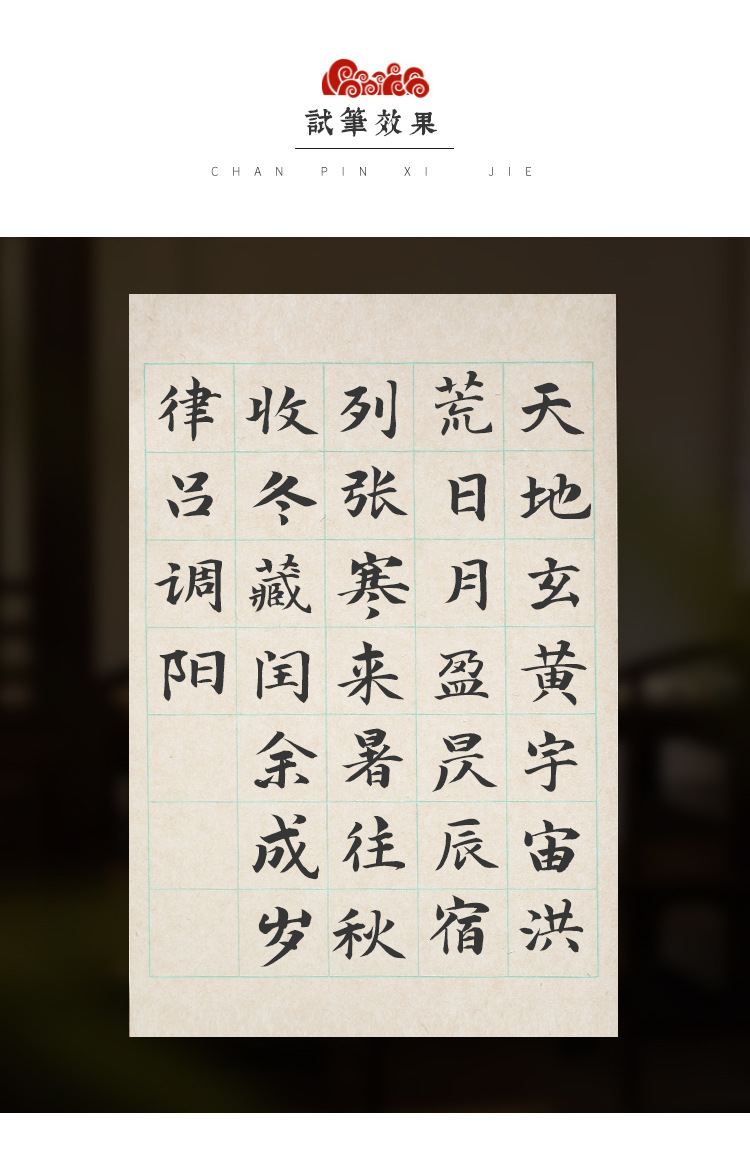 試筆效果
CHAN PIN XI JIE
天地玄黄宇宙洪
荒日月盈昃辰宿
列张寒来暑往秋
收冬藏闰余成岁
律吕调阳